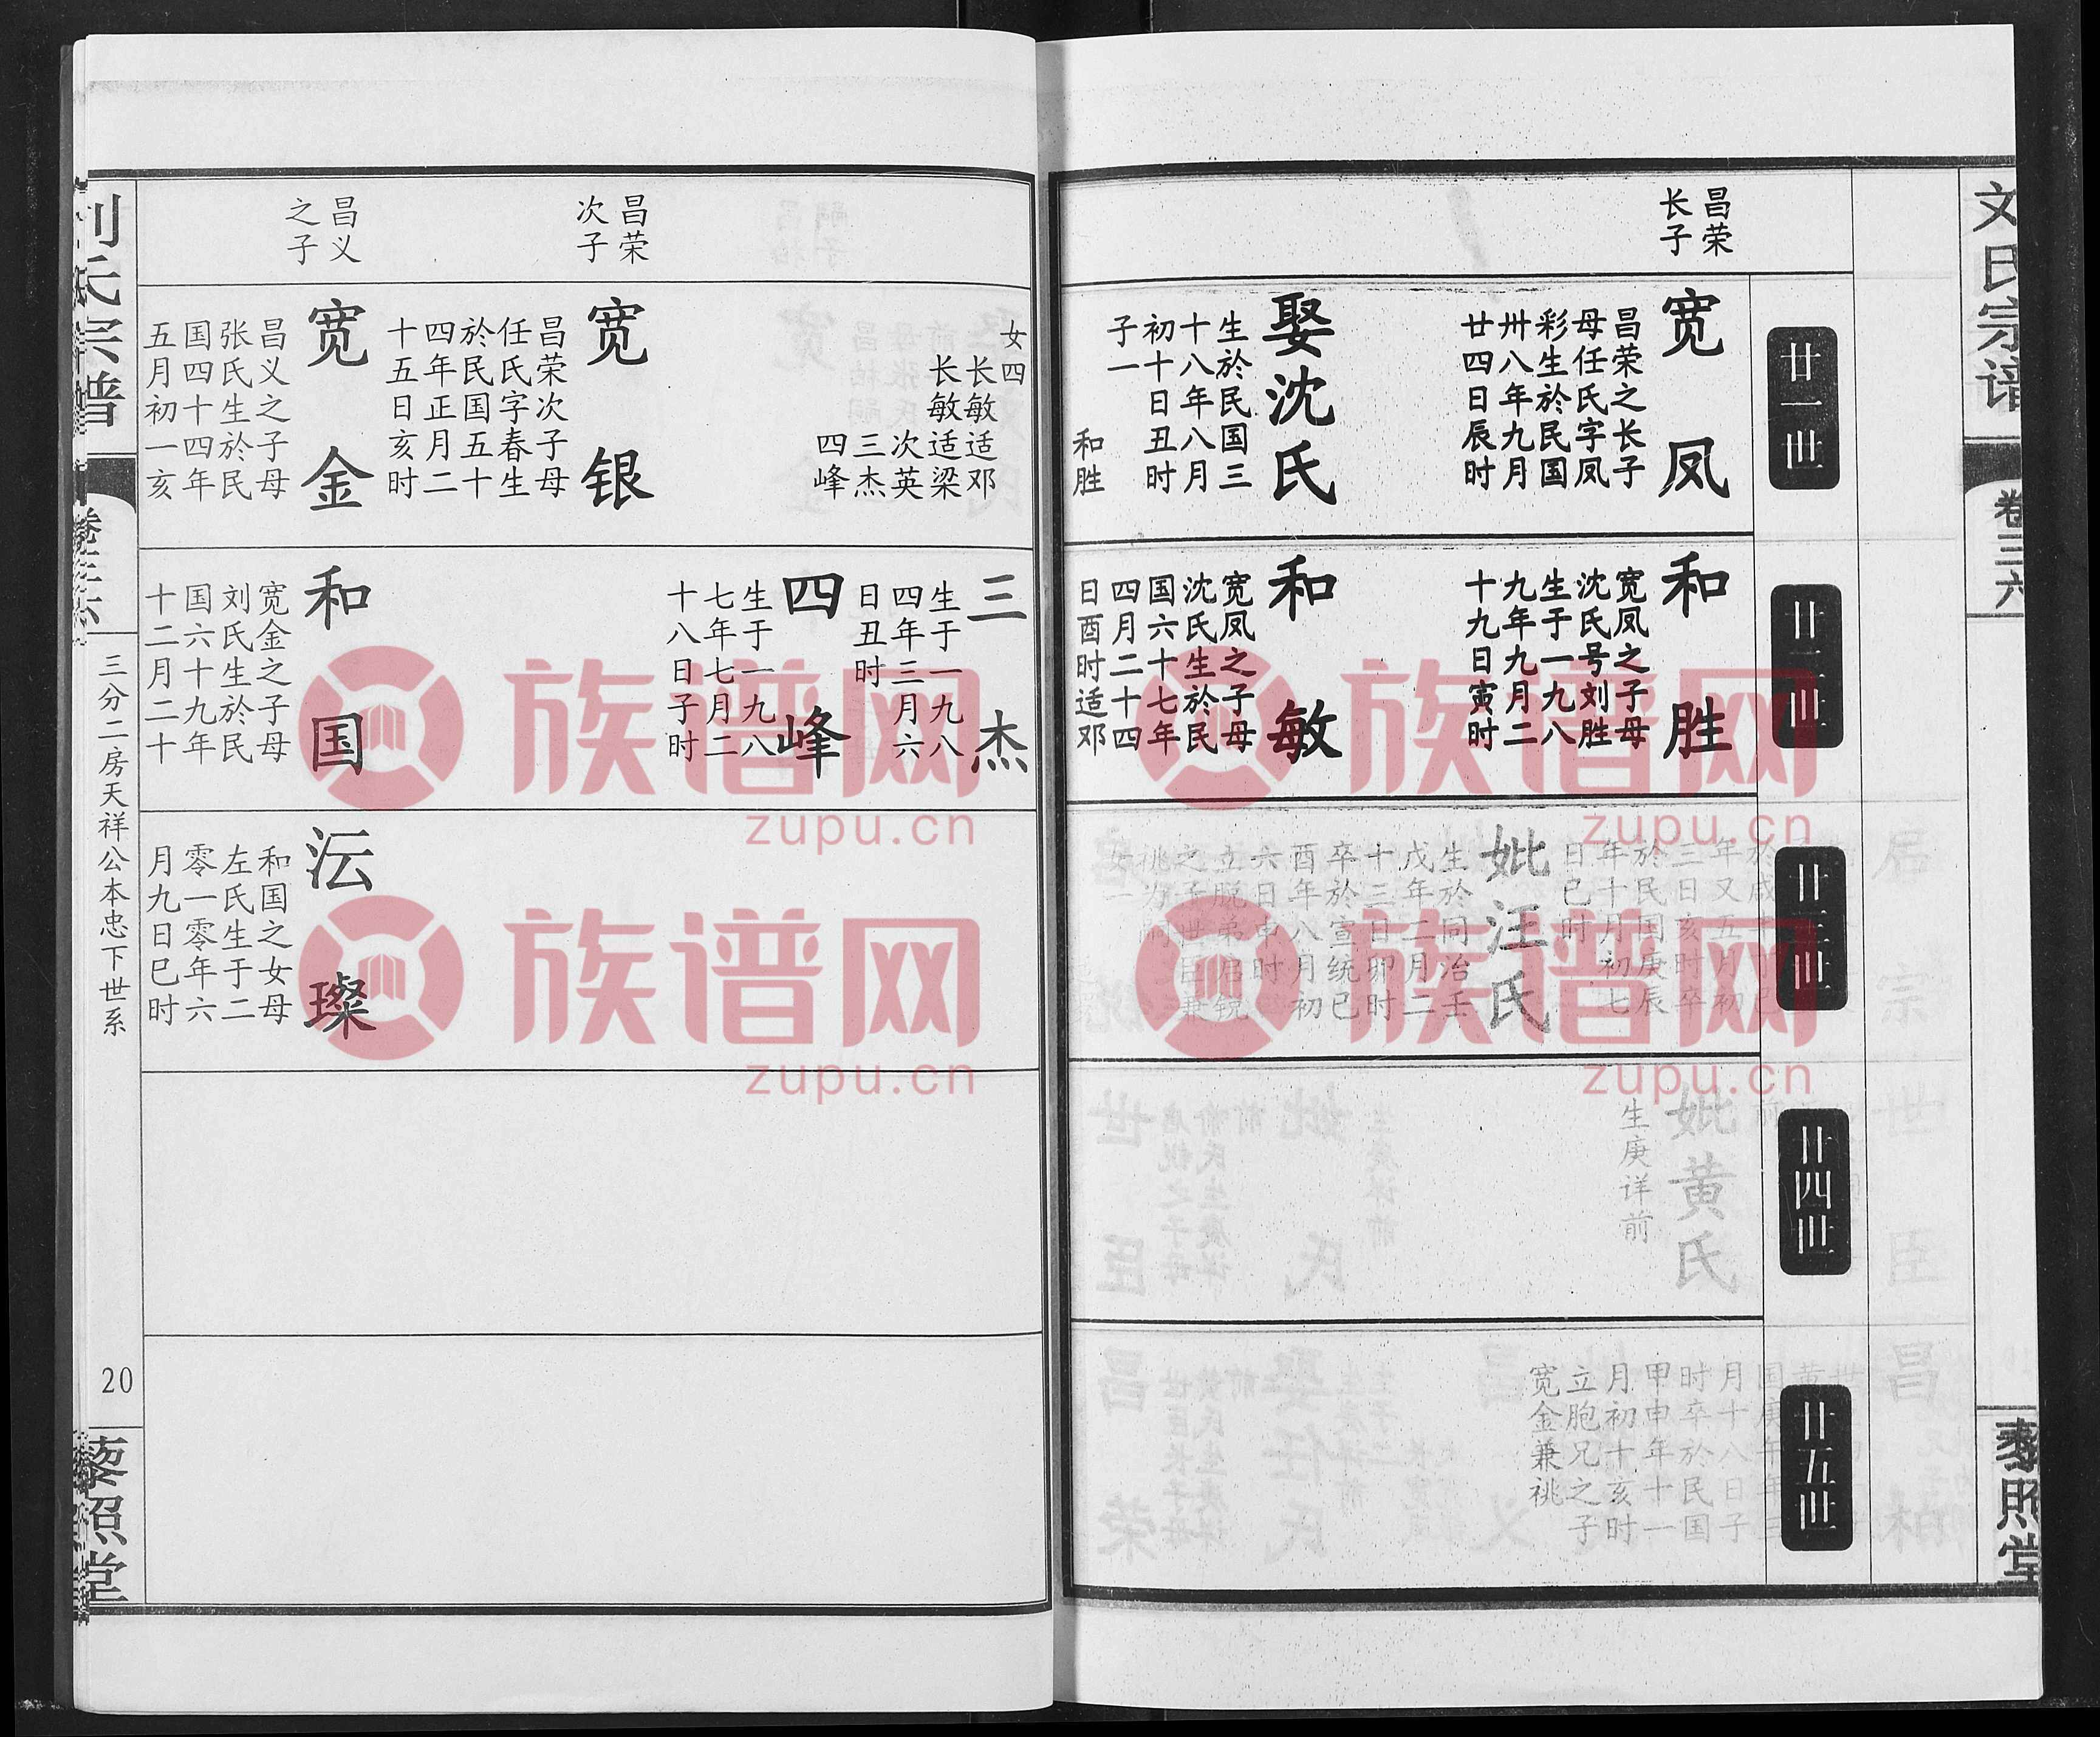 文氏宗谱
卷三六
黎照堂
廿一世
廿二世
廿三世
廿四世
廿五世
昌荣
长子
宽凤
昌荣之长子
母任氏字凤
彩生於民国
卅八年九月
廿四日辰时
娶沈氏
生於民国三
十八年八月
初十日丑时
子一
和胜
和胜
宽凤之子母
沈氏号刘胜
生于一九八
九年九月二
十九日寅时
和敏
宽凤之子母
沈氏生於民
国六十七年
四月二十四
日酉时适邓
妣汪氏
生於同治壬
戊年二月二
十三日卯时
卒於宣统已
酉年八月初
六日申时
妣黄氏
生庚详前
月十八日子
时卒於民国
甲申年十一
月初十亥时
立胞兄之子
宽金兼祧
女四
长敏适邓
长敏适梁
次英
三杰
四峰
三杰
生于一九八
四年三月六
日丑时
四峰
生于一九八
七年七月二
十八日子时
昌荣
次子
宽银
昌荣次子母
任氏字春生
於民国五十
四年正月二
十五日亥时
昌义
之子
宽金
昌义之子母
张氏生於民
国四十四年
五月初一亥
和国
宽金之子母
刘氏生於民
国六十九年
十二月二十
沄璨
和国之女母
左氏生于二
零一零年六
月九日巳时
氏宗谱
三分二房天祥公本忠下世系
20
黎照堂
族谱网
zupu.cn
族谱网
zupu.cn
族谱网
zupu.cn
族谱网
zupu.cn